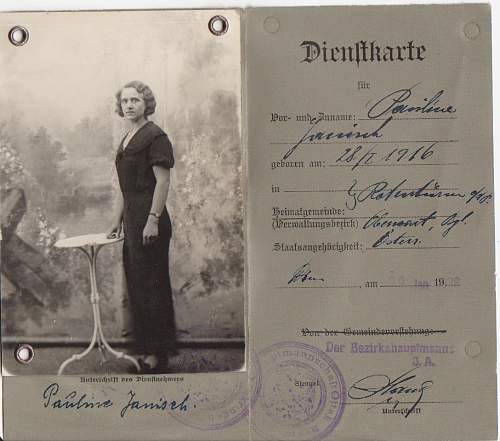 Unterschrift des Dienstnehmers
Pauline Janisch.
Dienstkarte
für
Vor- und Zuname: Pauline
Janisch
geboren am: 28/I 1916
in Rotenturm a/d P.
Heimatgemeinde:
(Verwaltungsbezirk) Oberwart, Bgl.
Staatsangehörigkeit: Österr.
am 19
Von der Gemeindevorstehung:
Der Bezirkshauptmann:
J. A.
Stempel
Unterschrift